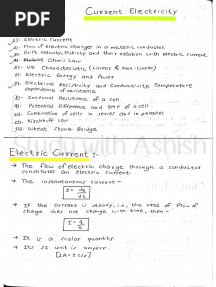 PDF
Current Electricity
1). Electric Current
2). Flow of Electric charges in a metallic conductor.
3). Drift velocity, Mobility and their relation with electric current.
4). Ohm's Law
5). V-I Characteristic (Linear & Non Linear)
6). Electric Energy and Power
7). Electrical Resistivity and Conductivity, Temperature
dependence of resistance
8). Internal Resistance of a cell
9). Potential Difference and EMF of a cell
10). Combination of cells in series and in parallel
11). Kirchhoff Law
12). Wheat Stone Bridge
with Ashish
Electric Current :-
→ The flow of electric charge through a conductor
constitutes an electric current.
→ The instantaneous current -
I = dq/dt
→ If the current is steady, i.e., the rate of flow of
charge does not change with time, then -
I = q/t
→ It is a scalar quantity.
→ Its SI unit is ampere.
[1A = 1 C/s]